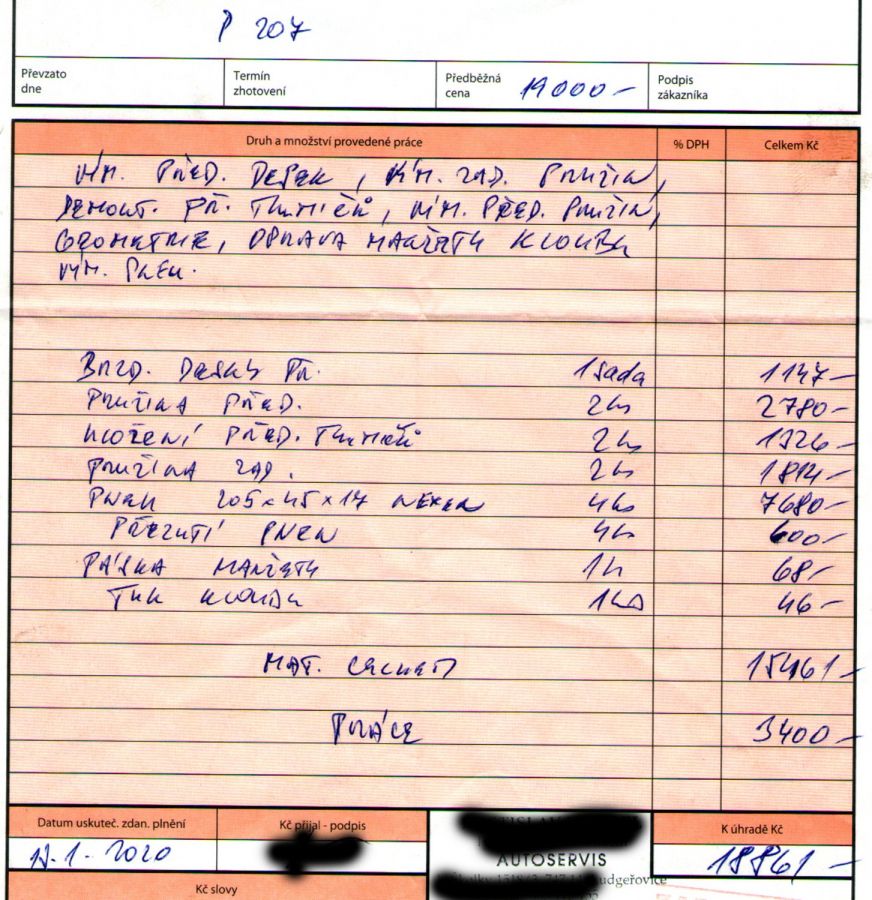 P 207
Převzato dne
Termín zhotovení
Předběžná cena 19000,-
Podpis zákazníka
Druh a množství provedené práce % DPH Celkem Kč
VÝM. PŘED. DESEK, VÝM. ZAD. PRUŽIN,
DEMONT. PŘ. TLUMIČŮ, VÝM. PŘED. PRUŽIN,
GEOMETRIE, OPRAVA MANŽETY KLOUBU
VÝM. PNEU.
BRZD. DESKY PŘ. 1 sada 1147,-
PRUŽINA PŘED. 2ks 2780,-
ULOŽENÍ PŘED. TLUMIČŮ 2ks 1326,-
PRUŽINA ZAD. 2ks 1814,-
PNEU 205×45×17 NEXEN 4ks 7680,-
PŘEZUTÍ PNEU 4ks 600,-
PÁSKA MANŽETY 1ks 68,-
TUK KLOUBU 1ks 46,-
MAT. CELKEM 15461,-
PRÁCE 3400,-
Datum uskuteč. zdan. plnění
Kč přijal - podpis
K úhradě Kč
1. 2020
AUTOSERVIS
18861,-
Kč slovy